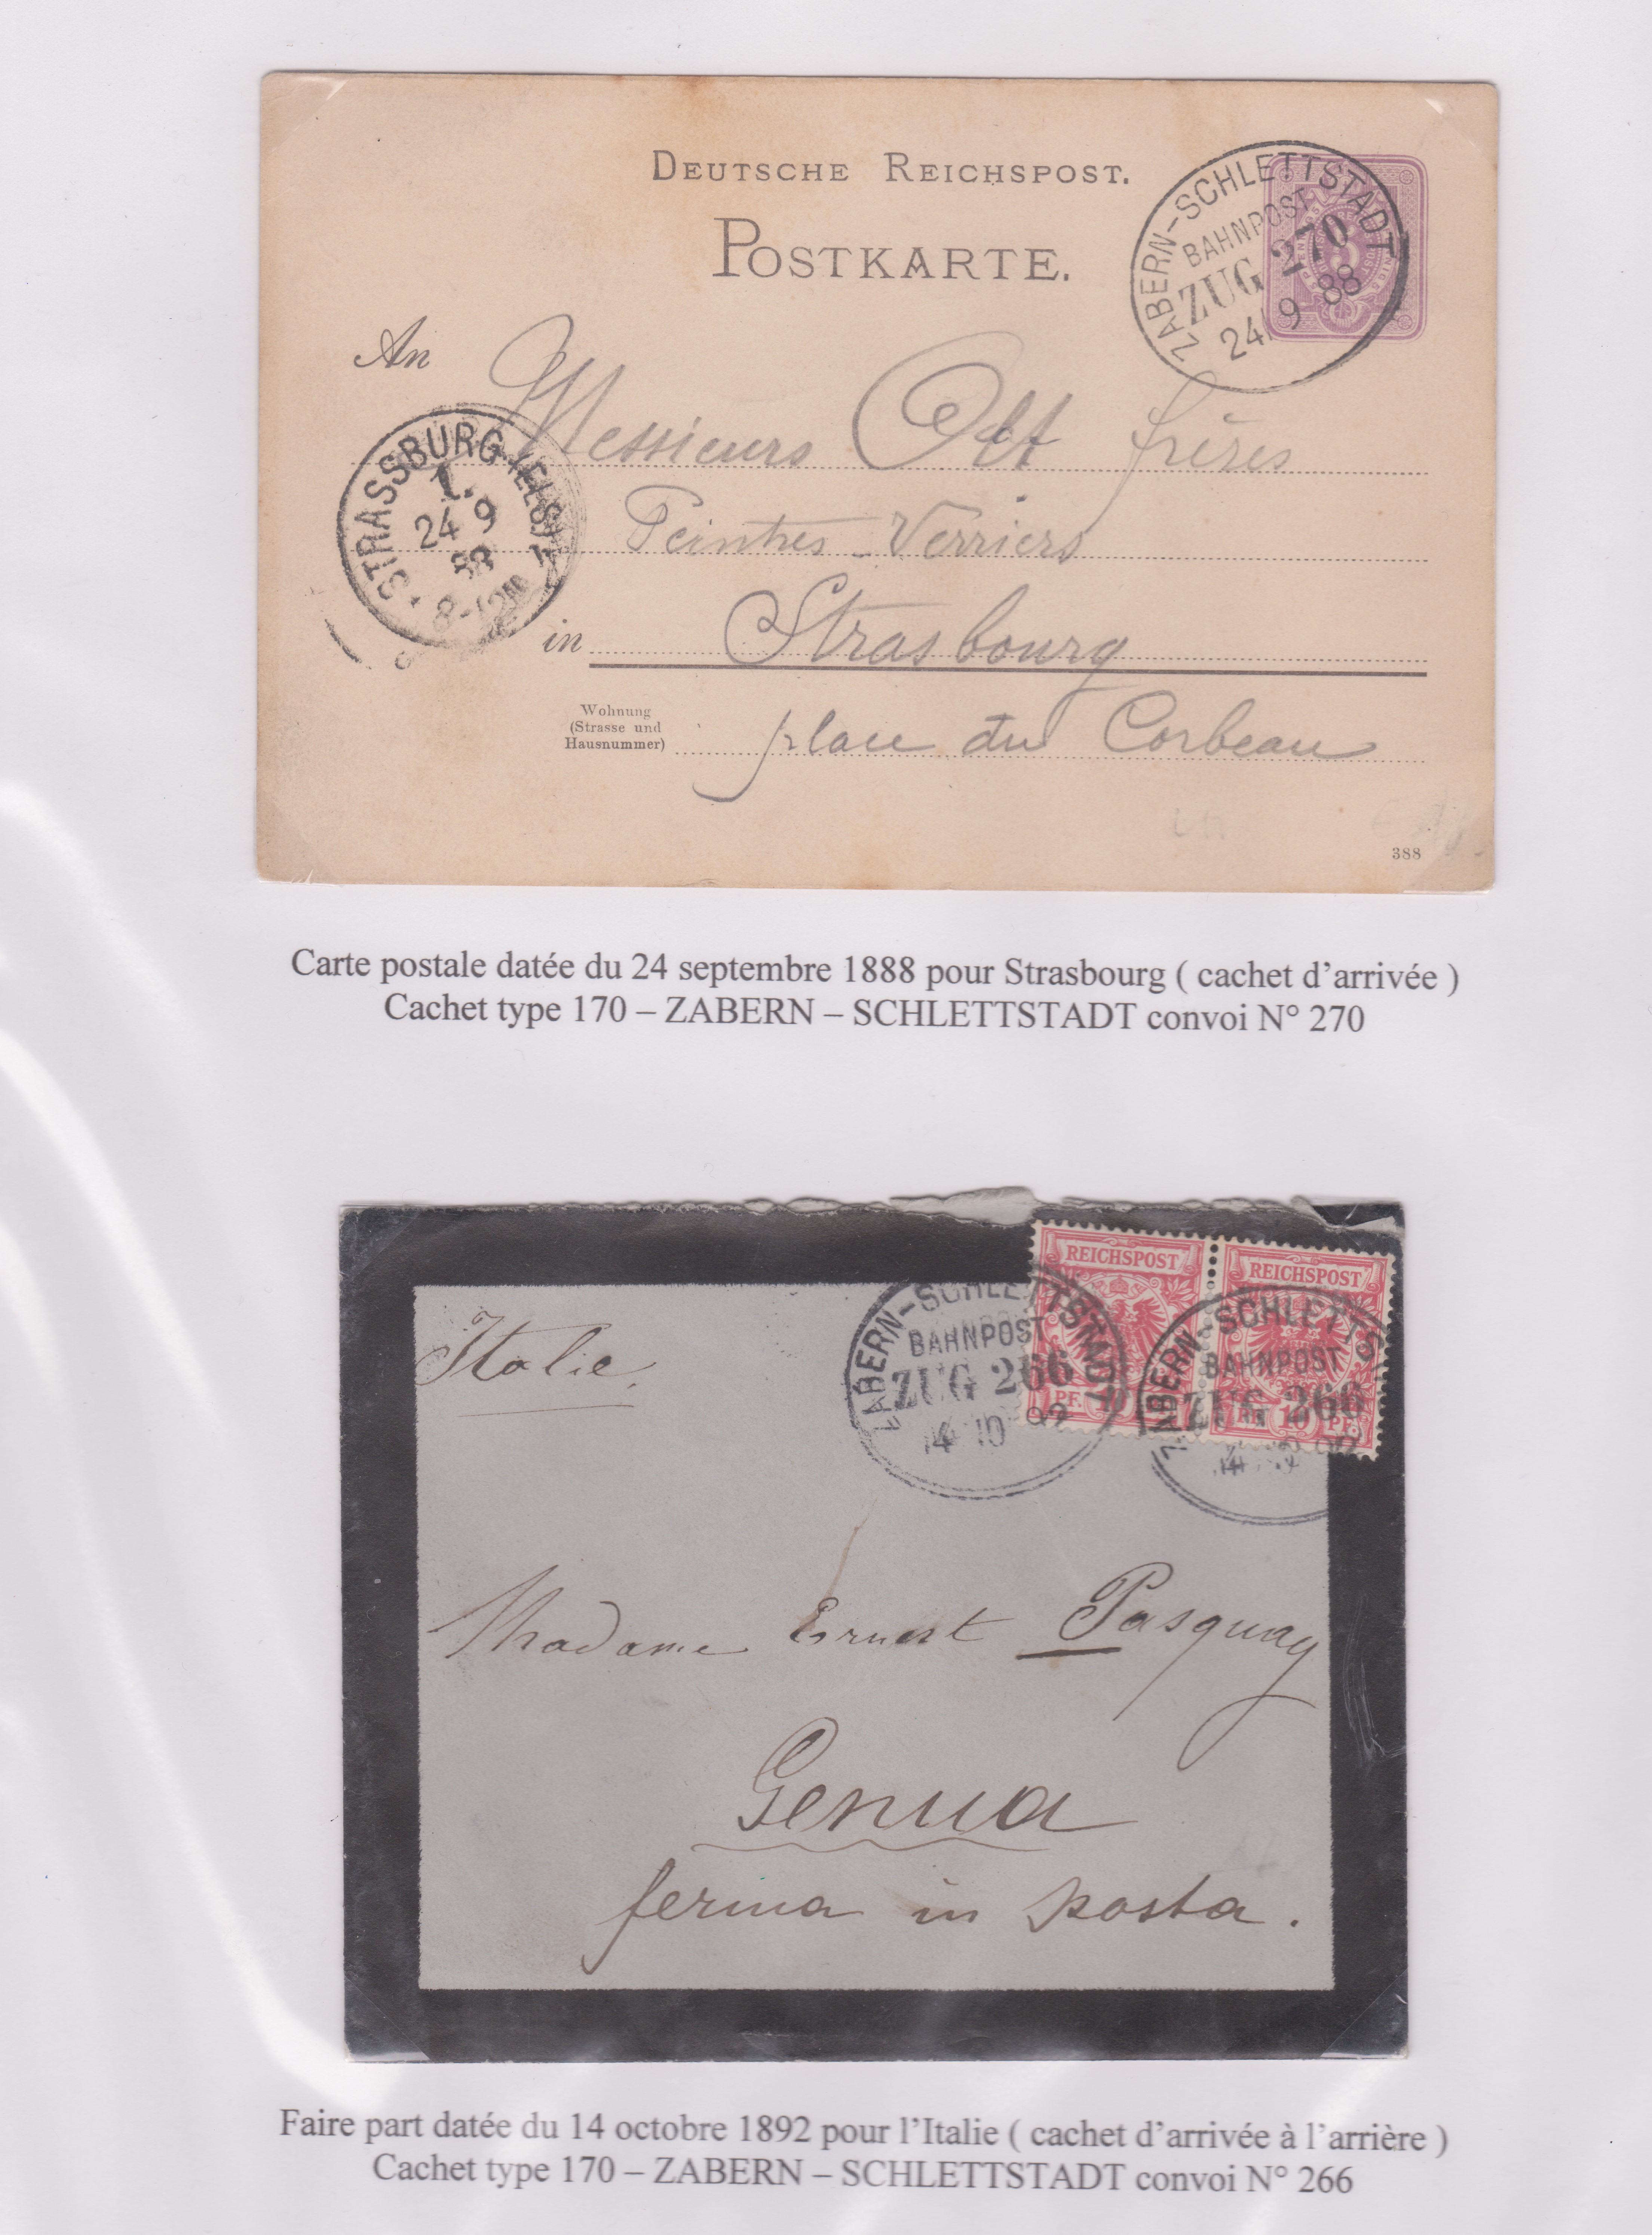 DEUTSCHE REICHSPOST.
POSTKARTE.
ZABERN-SCHLETTSTADT
BAHNPOST
ZUG 270
24 9 88
An Messieurs Ott frères
STRASSBURG (ELS)
1.
24 9
88
8-12N
Peintres-Verriers
in Strasbourg
Wohnung
(Strasse und
Hausnummer)
place du Corbeau
388
Carte postale datée du 24 septembre 1888 pour Strasbourg ( cachet d’arrivée )
Cachet type 170 – ZABERN – SCHLETTSTADT convoi N° 270
REICHSPOST
10 PF.
REICHSPOST
PF. 10 PF.
ZABERN-SCHLETTSTADT
BAHNPOST
ZUG 266
14 10 92
ZABERN-SCHLETTS
BAHNPOST
ZUG 266
14 10 92
Italie.
Madame Ernest Pasquay
Genua
ferma in posta.
Faire part datée du 14 octobre 1892 pour l’Italie ( cachet d’arrivée à l’arrière )
Cachet type 170 – ZABERN – SCHLETTSTADT convoi N° 266